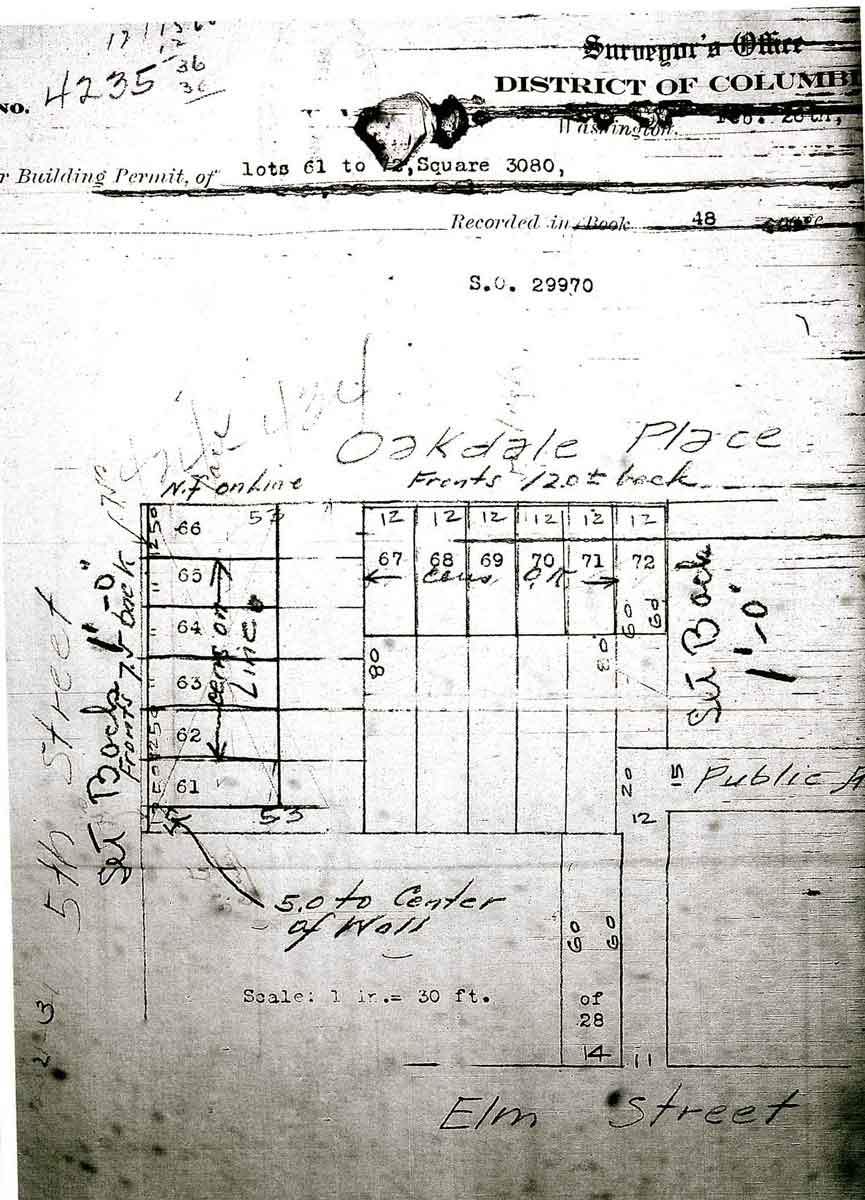 Surveyor's Office
DISTRICT OF COLUMBI
NO. 4235
36
Washington, Feb. 28th,
r Building Permit, of lots 61 to 72, Square 3080,
Recorded in Book 48 page
S.O. 29970
Oakdale Place
N.F on Line
Fronts 12.0± back
66 53
65
64
63
62
61
53
12 12 12 12 12 12
67 68 69 70 71 72
60 60
80 80
Line
5th Street
Set Back 1'-0"
Fronts 7.5 back
Set Back 1'-0"
20 15 Public A
12
5.0 to Center
of Wall
60 60
Scale: 1 in.= 30 ft.
of
28
14 11
Elm Street